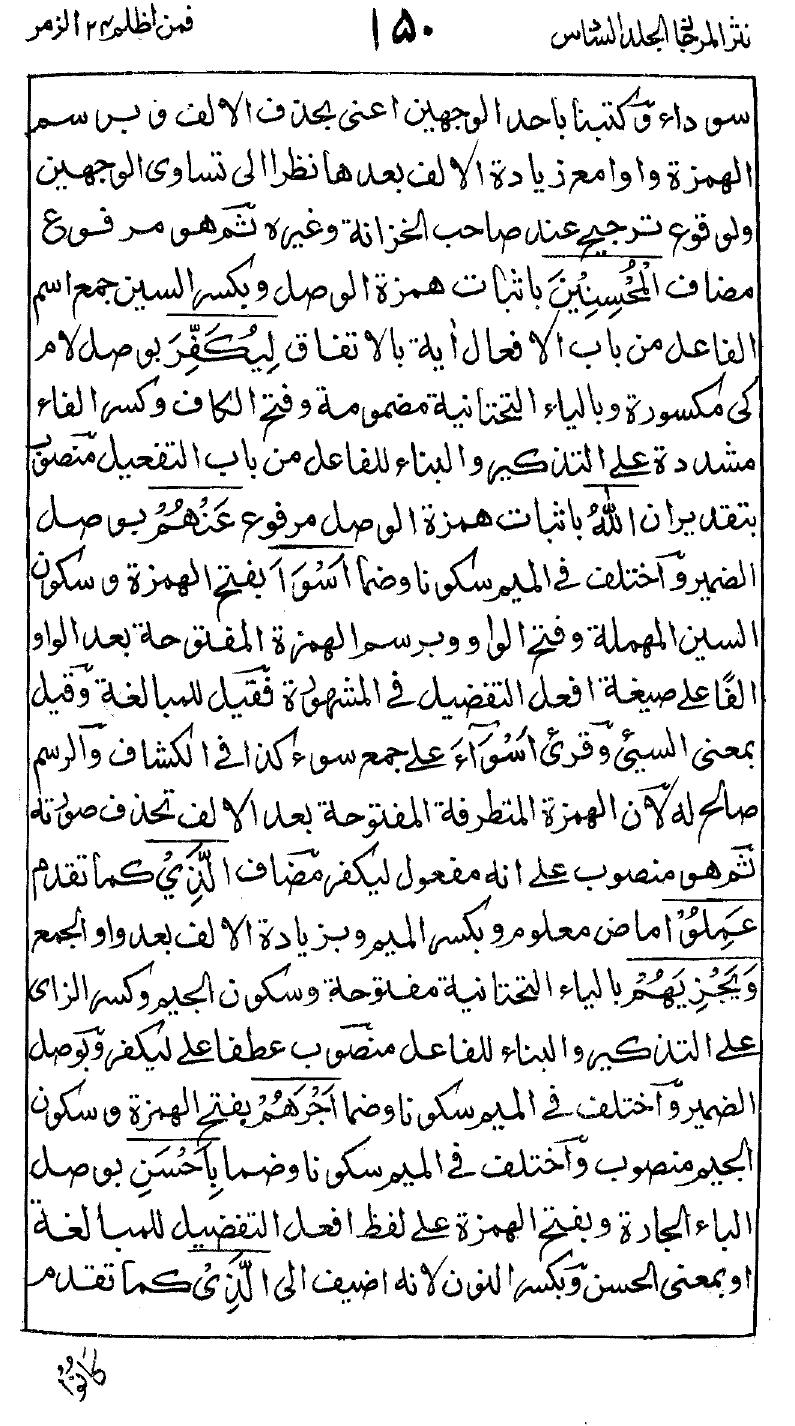 نثر المرجان الجلد السادس ١٥٠ فمن اظلم ٢٤ الزمر
سوداء وكتبنا باحد الوجهين اعنى بحذف الالف و برسم
الهمزة واوا مع زيادة الالف بعدها نظرا الى تساوى الوجهين
ولوقوع ترجيح عند صاحب الخزانة وغيره ثم هو مرفوع
مضاف الْمُحْسِنِيْنَ باثبات همزة الوصل وبكسر السين جمع اسم
الفاعل من باب الافعال اية بالاتفاق لِيُكَفِّرَ بوصل لام
كى مكسورة وبالياء التحتانية مضمومة وفتح الكاف وكسر الفاء
مشددة على التذكير والبناء للفاعل من باب التفعيل منصوب
بتقدير ان اللّٰهُ باثبات همزة الوصل مرفوع عَنْهُمْ بوصل
الضمير واختلف فى الميم سكونا وضما اَسْوَاَ بفتح الهمزة وسكون
السين المهملة وفتح الواو وبرسم الهمزة المفتوحة بعد الواو
الفا على صيغة افعل التفضيل فى المشهورة فقيل للمبالغة وقيل
بمعنى السيئ وقرئ اَسْوَآءَ على جمع سوء كذا فى الكشاف والرسم
صالح له لان الهمزة المتطرفة المفتوحة بعد الالف تحذف صورته
ثم هو منصوب على انه مفعول ليكفر مضاف الَّذِيْ كما تقدم
عَمِلُوْا ماض معلوم وبكسر الميم وبزيادة الالف بعد واو الجمع
وَيَجْزِيَهُمْ بالياء التحتانية مفتوحة وسكون الجيم وكسر الزاى
على التذكير والبناء للفاعل منصوب عطفا على ليكفر وبوصل
الضمير واختلف فى الميم سكونا وضما اَجْرَهُمْ بفتح الهمزة وسكون
الجيم منصوب واختلف فى الميم سكونا وضما بِاَحْسَنِ بوصل
الباء الجارة وبفتح الهمزة على لفظ افعل التفضيل للمبالغة
او بمعنى الحسن وبكسر النون لانه اضيف الى الَّذِيْ كما تقدم
كَانُوْا